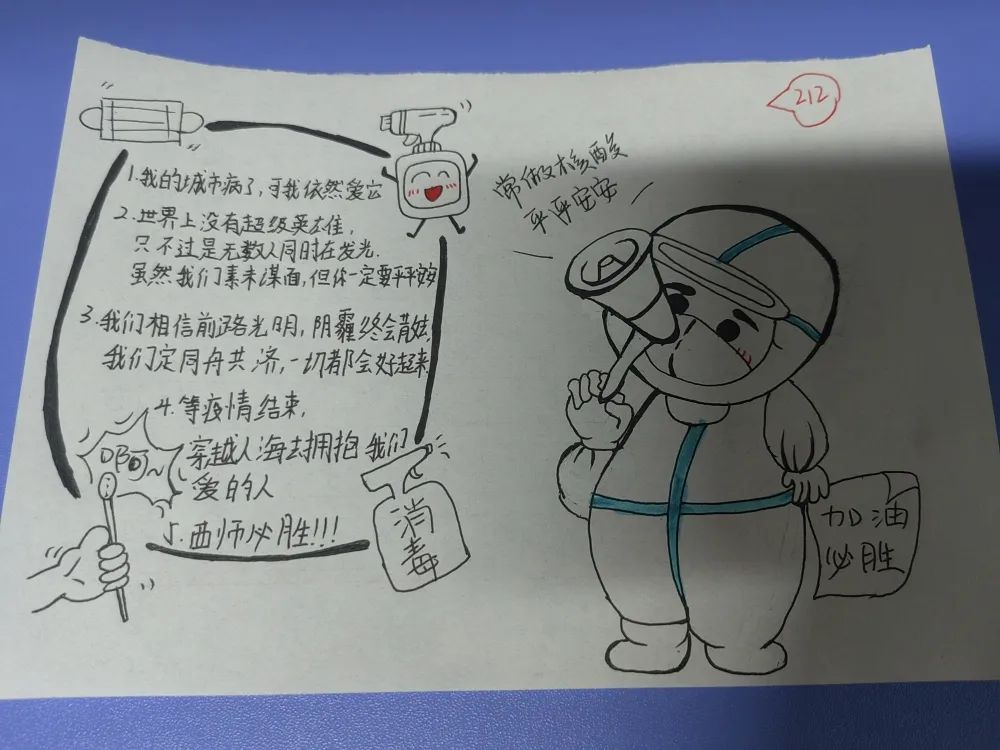 1.我的城市病了,可我依然爱它
2.世界上没有超级英雄,
只不过是无数人同时在发光.
虽然我们素未谋面,但你一定要平平安安
3.我们相信前路光明,阴霾终会散去.
我们定同舟共济,一切都会好起来.
4.等疫情结束,
穿越人海去拥抱我们
爱的人
5.西师必胜!!!
啊~
消
毒
212
常做核酸
平平安安
加油
必胜